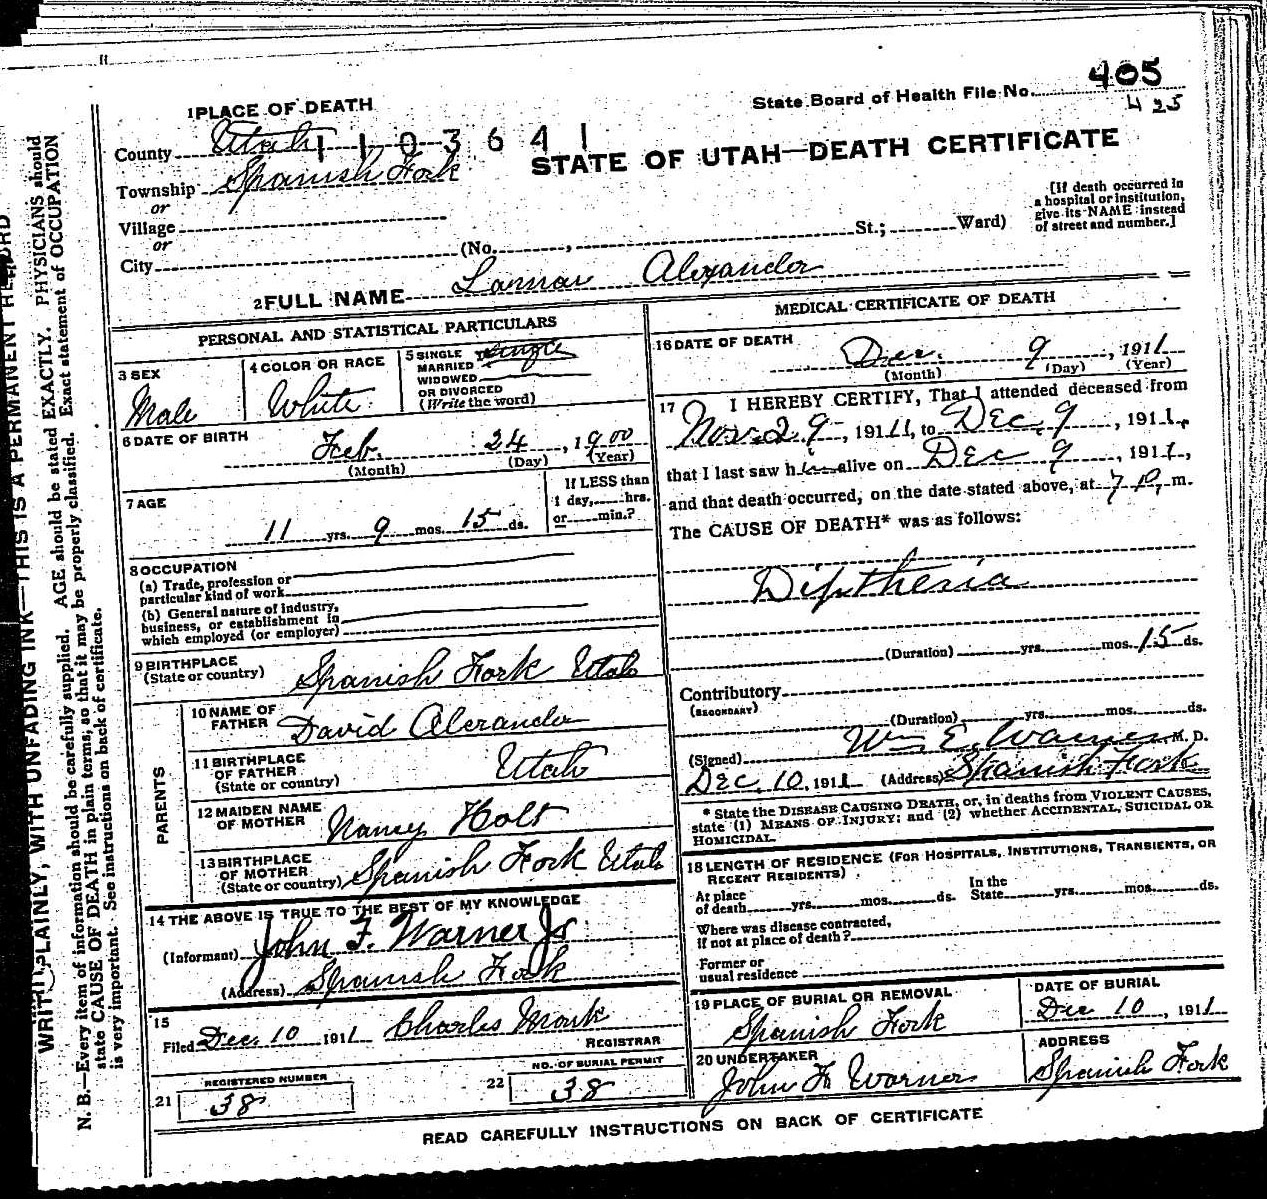 405
State Board of Health File No.
425
1 PLACE OF DEATH
County Utah
1103641
STATE OF UTAH—DEATH CERTIFICATE
Township Spanish Fork
or
Village
or
City (No. , St.; Ward)
[If death occurred in
a hospital or institution,
give its NAME instead
of street and number.]
2 FULL NAME Lamar Alexander
PERSONAL AND STATISTICAL PARTICULARS
3 SEX
Male
4 COLOR OR RACE
White
5 SINGLE
MARRIED
WIDOWED
OR DIVORCED
(Write the word)
Single
6 DATE OF BIRTH
Feb. 24, 1900
(Month) (Day) (Year)
7 AGE
11 yrs. 9 mos. 15 ds.
If LESS than
1 day, hrs.
or min.?
8 OCCUPATION
(a) Trade, profession or
particular kind of work
(b) General nature of industry,
business, or establishment in
which employed (or employer)
9 BIRTHPLACE
(State or country)
Spanish Fork Utah
PARENTS
10 NAME OF
FATHER
David Alexander
11 BIRTHPLACE
OF FATHER
(State or country)
Utah
12 MAIDEN NAME
OF MOTHER
Nancy Holt
13 BIRTHPLACE
OF MOTHER
(State or country)
Spanish Fork Utah
14 THE ABOVE IS TRUE TO THE BEST OF MY KNOWLEDGE
(Informant) John F. Warner Jr
(Address) Spanish Fork
15
Filed Dec. 10 1911 Charles Monk
REGISTRAR
REGISTERED NUMBER
21 38
NO. OF BURIAL PERMIT
22 38
MEDICAL CERTIFICATE OF DEATH
16 DATE OF DEATH
Dec. 9, 1911
(Month) (Day) (Year)
17 I HEREBY CERTIFY, That I attended deceased from
Nov. 29, 1911, to Dec 9, 1911,
that I last saw h alive on Dec 9, 1911,
and that death occurred, on the date stated above, at 7 P. m.
The CAUSE OF DEATH* was as follows:
Diptheria
(Duration) yrs. mos. 15 ds.
Contributory
(SECONDARY)
(Duration) yrs. mos. ds.
(Signed) Wm E. Warner M. D.
Dec. 10, 1911 (Address) Spanish Fork
* State the DISEASE CAUSING DEATH, or, in deaths from VIOLENT CAUSES,
state (1) MEANS OF INJURY; and (2) whether ACCIDENTAL, SUICIDAL OR
HOMICIDAL.
18 LENGTH OF RESIDENCE (FOR HOSPITALS, INSTITUTIONS, TRANSIENTS, OR
RECENT RESIDENTS)
At place
of death yrs. mos. ds.
In the
State yrs. mos. ds.
Where was disease contracted,
if not at place of death?
Former or
usual residence
19 PLACE OF BURIAL OR REMOVAL
Spanish Fork
DATE OF BURIAL
Dec 10, 1911
20 UNDERTAKER
John F Warner
ADDRESS
Spanish Fork
READ CAREFULLY INSTRUCTIONS ON BACK OF CERTIFICATE
WRITE PLAINLY, WITH UNFADING INK—THIS IS A PERMANENT RECORD
N. B.—Every item of information should be carefully supplied. AGE should be stated EXACTLY. PHYSICIANS should
state CAUSE OF DEATH in plain terms, so that it may be properly classified. Exact statement of OCCUPATION
is very important. See instructions on back of certificate.